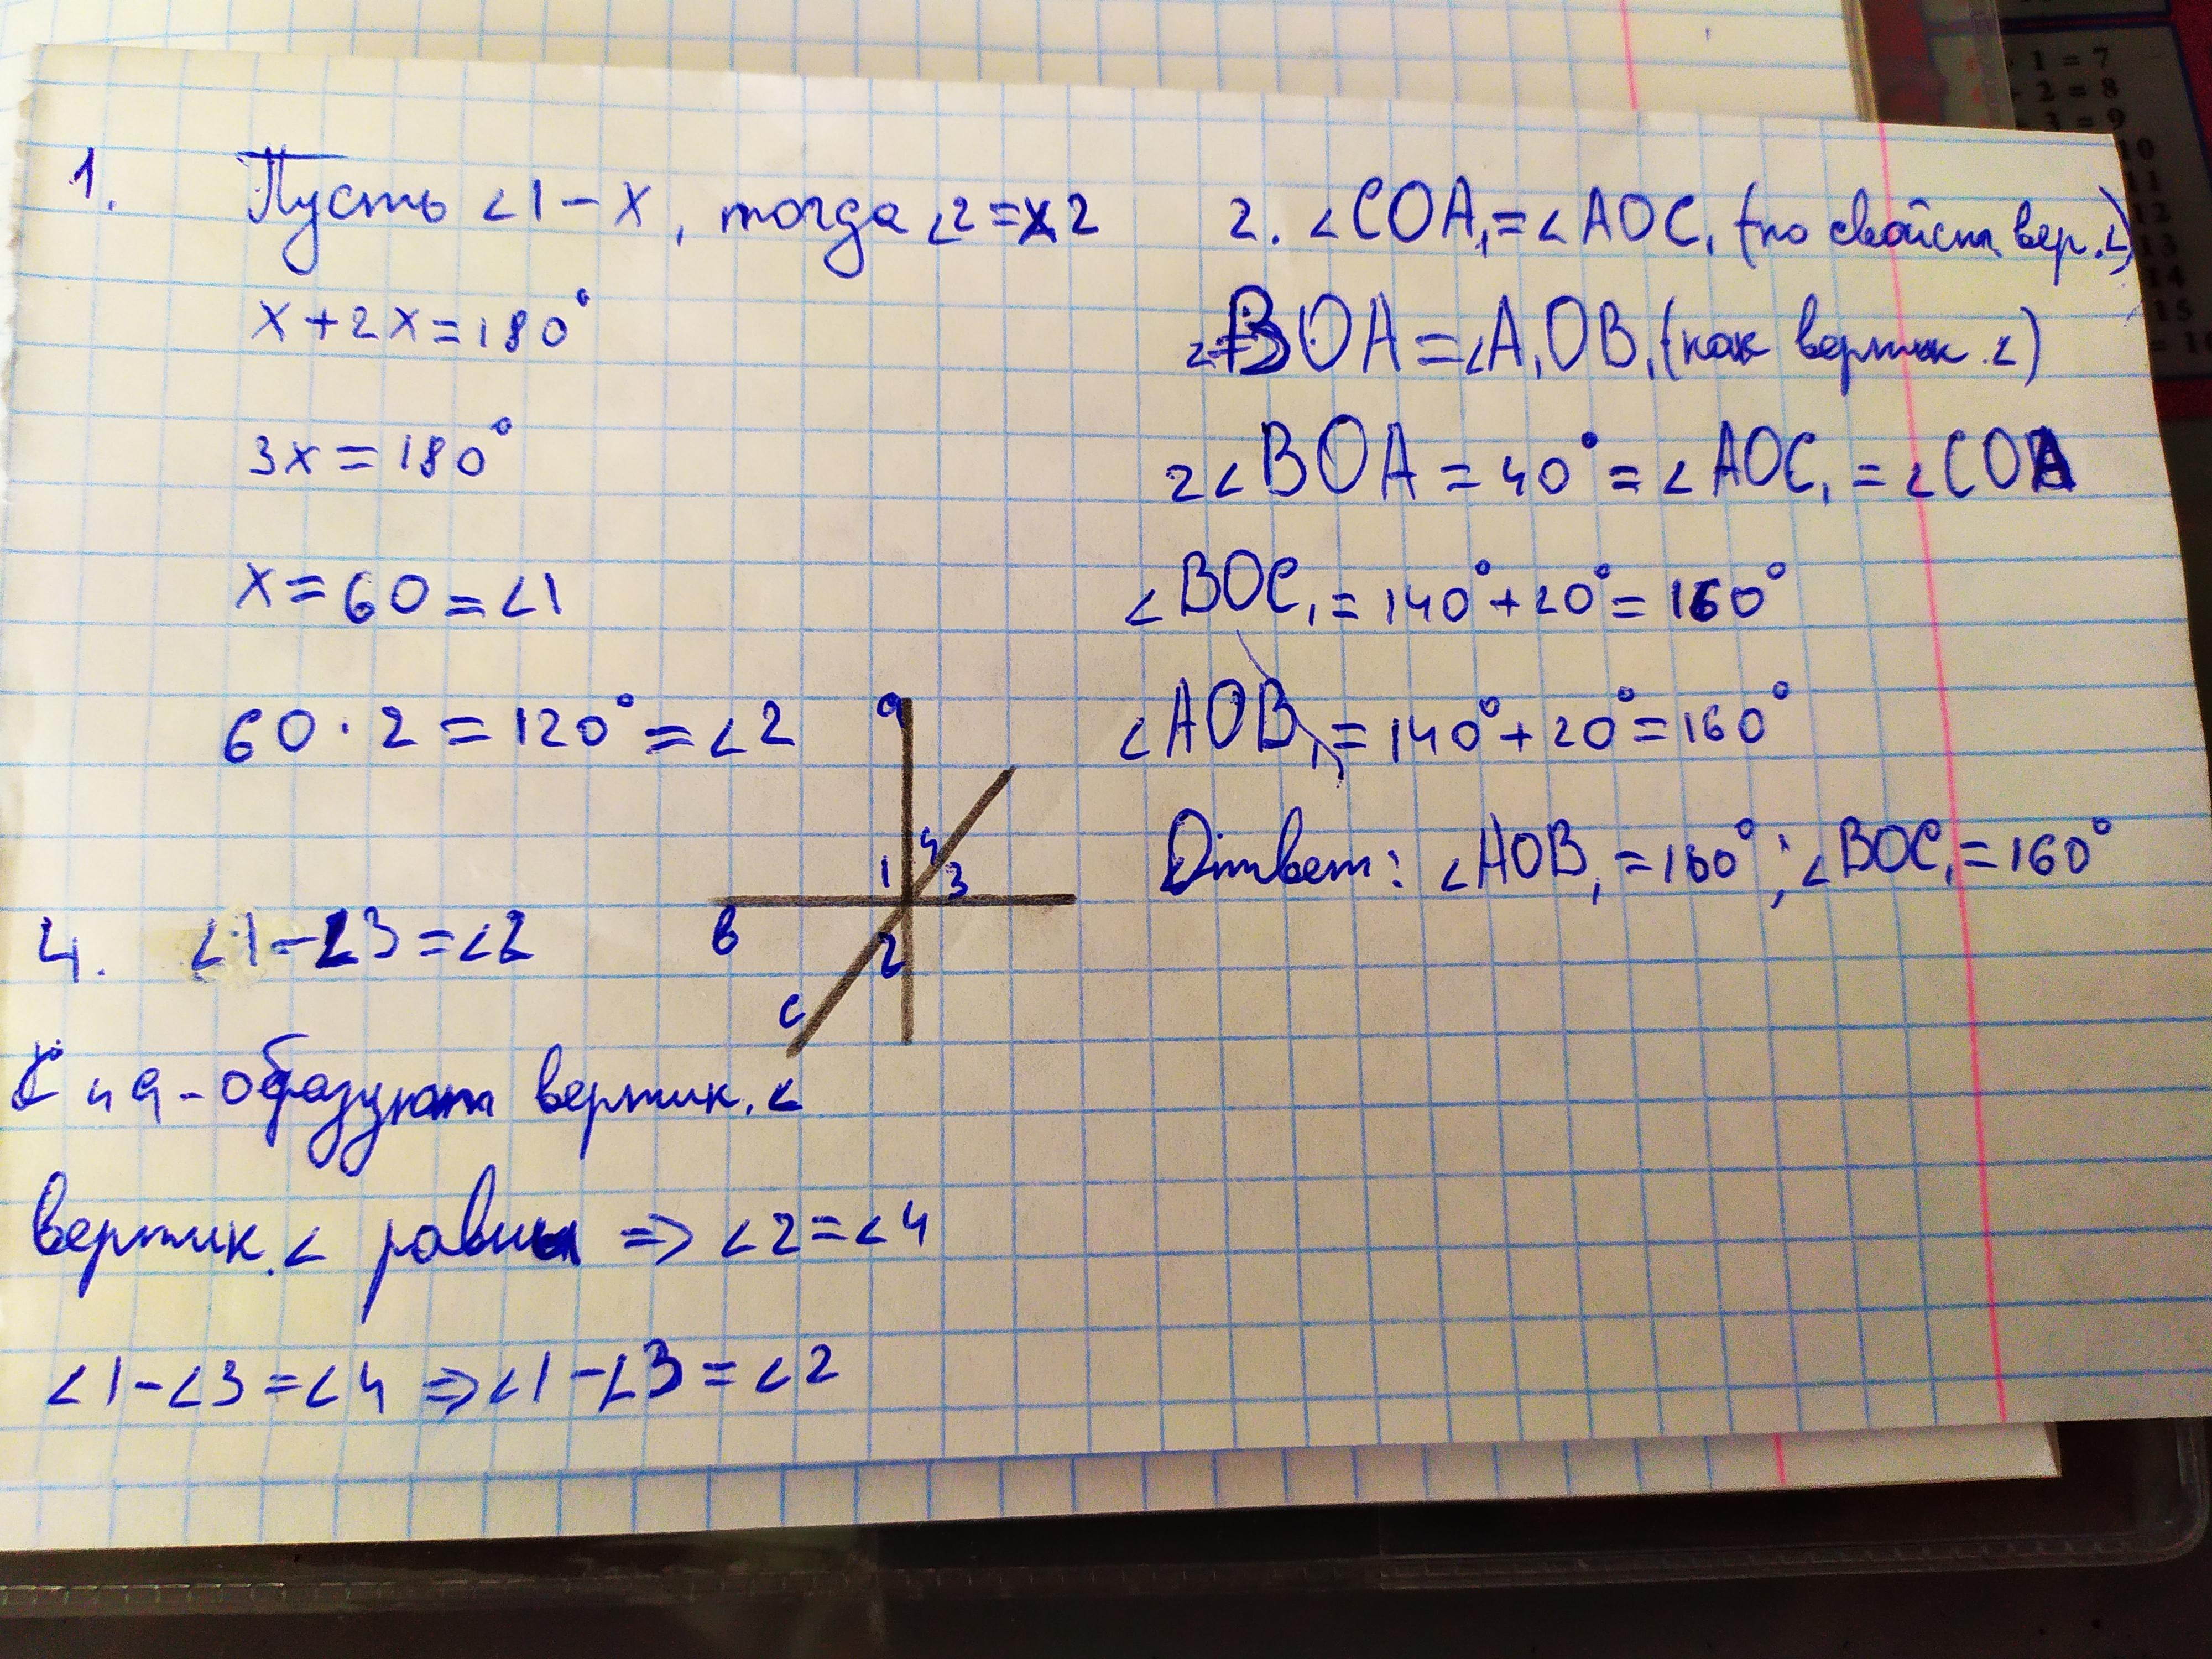 1. Пусть <1-x, тогда <2=x2
x+2x=180°
3x=180°
x=60=<1
60·2=120°=<2
2. <COA₁=<AOC₁ (по свойств вер.<)
BOA=<A₁OB₁ (как вертик.<)
2<BOA=40°=<AOC₁=<COA
<BOC₁=140°+20°=160°
<AOB₁=140°+20°=160°
Ответ: <AOB₁=160°; <BOC₁=160°
a
1 4 3
в 2
с
4. <1-<3=<2
с и a-образуют вертик.<
вертик.< равны => <2=<4
<1-<3=<4 => <1-<3=<2
1 = 7
2 = 8
3 = 9
10
11
12
13
14
15